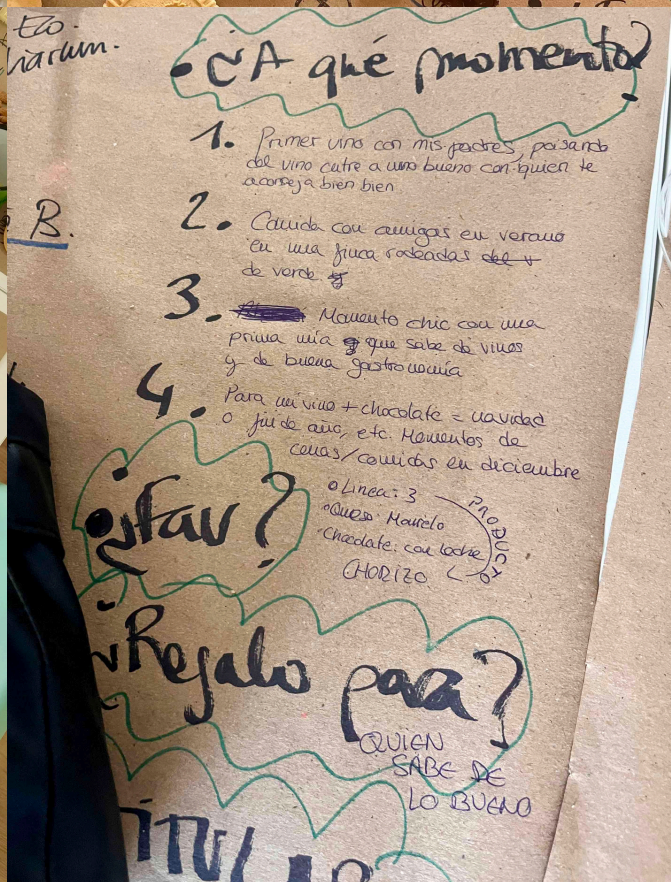 Eco.
• ¿A qué momento?
1. Primer vino con mis padres, pasando
del vino cutre a uno bueno con quien te
aconseja bien bien
B.
2. Comida con amigas en verano
en una finca rodeadas
de verde.
3. Momento chic con una
prima mía que sabe de vinos
y de buena gastronomía
4. Para mi vino + chocolate = navidad
o fin de año, etc. Momentos de
cenas/comidas en diciembre
¿fav?
o Linea: 3
o Queso: Mauielo
Chocolate: con leche
CHORIZO
PRODUCTO
¿Regalo para?
QUIEN
SABE DE
LO BUENO
TITULAR